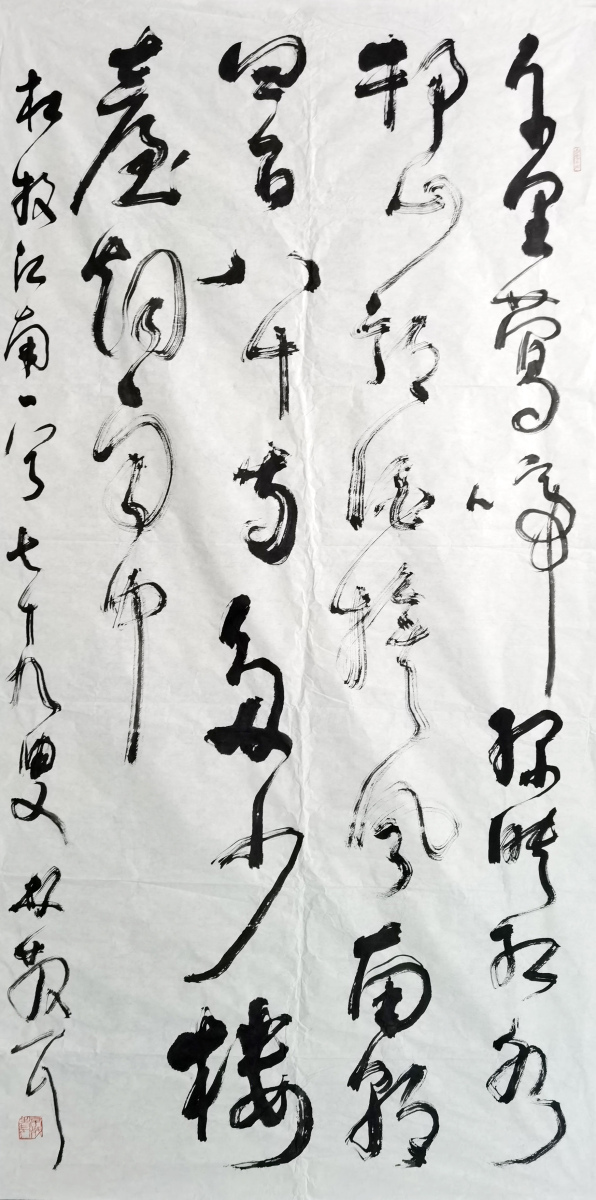 千里鶯啼綠映紅水
村山郭酒旗風南朝
四百八十寺多少樓
臺烟雨中
杜牧江南一首七十九叟林散耳